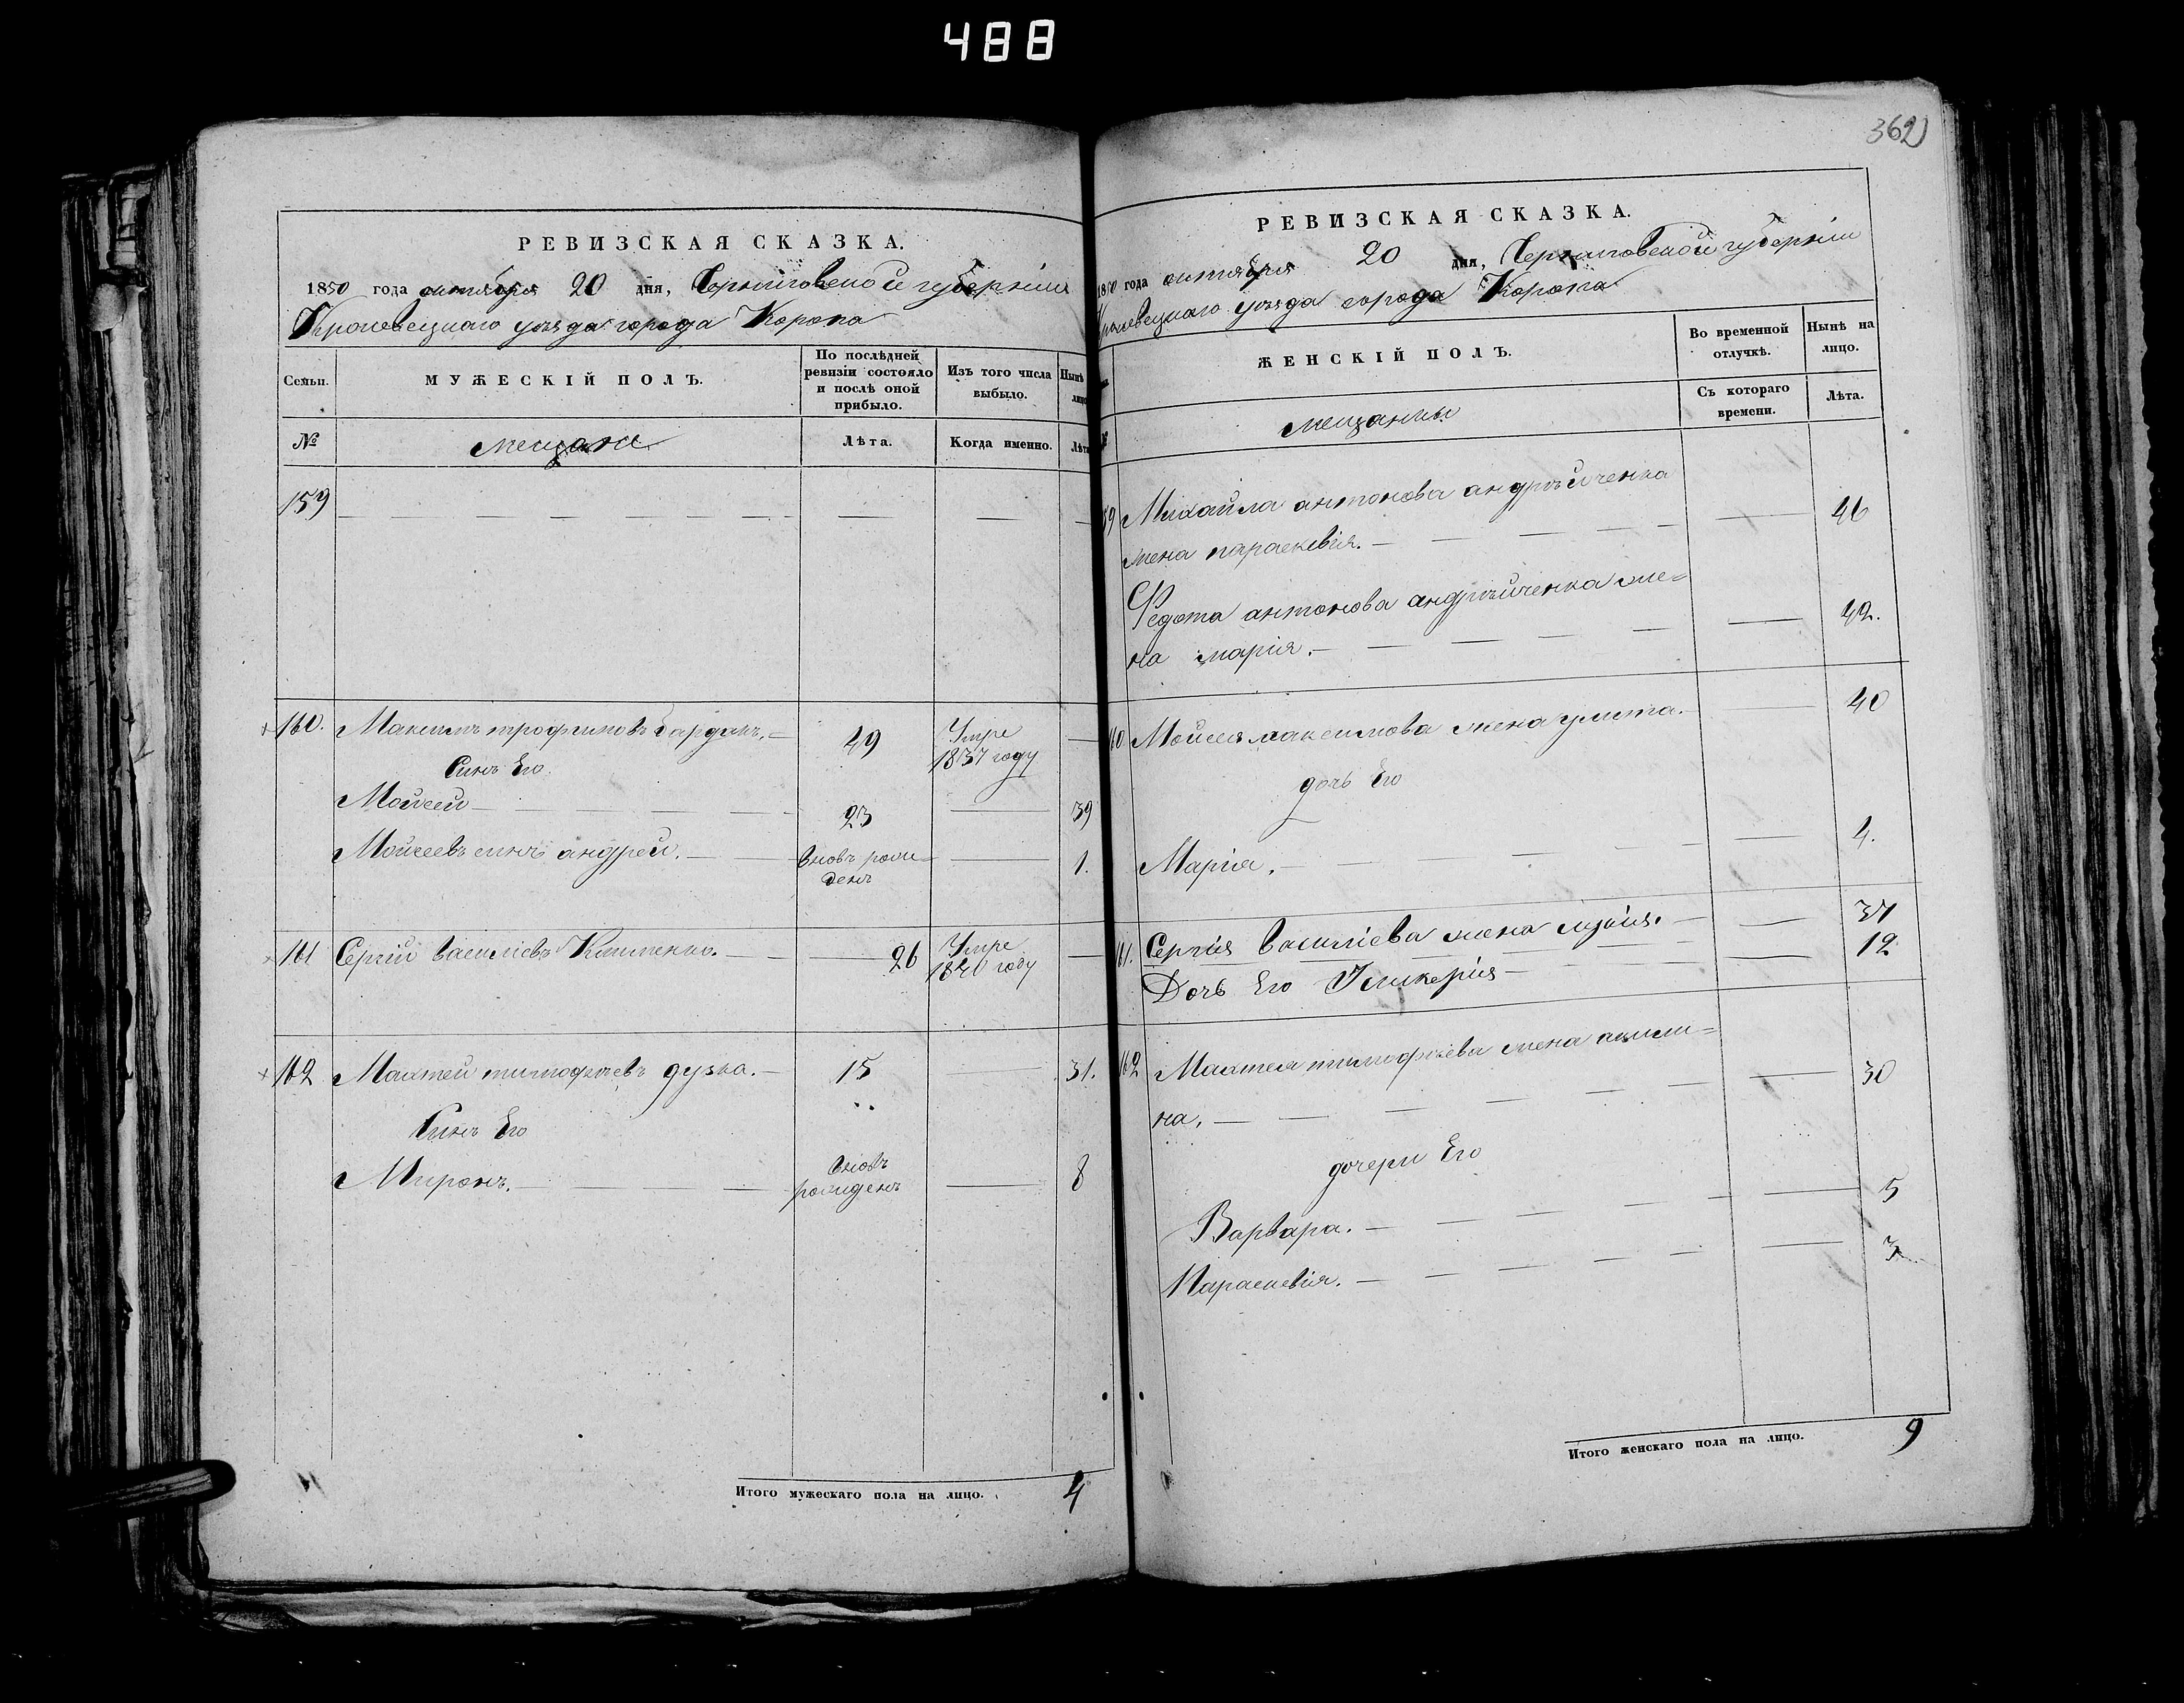 488
362
РЕВИЗСКАЯ СКАЗКА.
1850 года октября 20 дня, Черниговской губерніи
Кролевецкаго уѣзда города Коропа
Семьи.
МУЖЕСКІЙ ПОЛЪ.
По послѣдней ревизіи состояло и послѣ оной прибыло.
Изъ того числа выбыло.
Нынѣ лицо
№
мещане
Лѣта.
Когда именно.
Лѣта
159
160. Максимъ трофимовъ бардакъ. 49 Умре 1837 году
Синъ Его
Мойсей 23 39
Мойсеевъ синъ андрей. вновь рожденъ 1.
161 Сергій василіевъ 26 Умре 1840 году
162 Махтей тимофѣевъ дузка. 15 31.
Синъ Его
Миронъ. вновь рожденъ 8
Итого мужескаго пола на лицо. 4
РЕВИЗСКАЯ СКАЗКА.
1850 года октября 20 дня, Черниговской губерніи
Кролевецкаго уѣзда города Коропа
ЖЕНСКІЙ ПОЛЪ.
Во временной отлучкѣ.
Нынѣ на лицо.
мещанки
Съ котораго времени.
Лѣта.
59 Михайла антонова андрѣйченка
жена параскевія. 46
Федота антонова андрѣйченка же=
на марія. 42.
60 Мойсея максимова жена улита. 40
дочь Его
Марія. 4.
161. Сергія василіева жена 37
Дочь Его Гликерія 12
162 Махтея тимофѣева жена акили=
на. 30
дочери Его
Варвара. 5
Параскевія. 3
Итого женскаго пола на лицо. 9